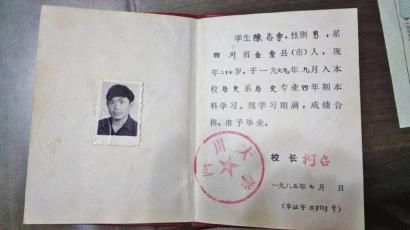 学生陳志雪,性别男,系
四川省金堂县(市)人,现
年二十七岁,于一九七九年九月入本
校历史系历史专业四年制本
科学习。现学习期满,成绩合
格,准予毕业。
四川大学
校 长
一九八三年七月 日
(毕证字0203号)